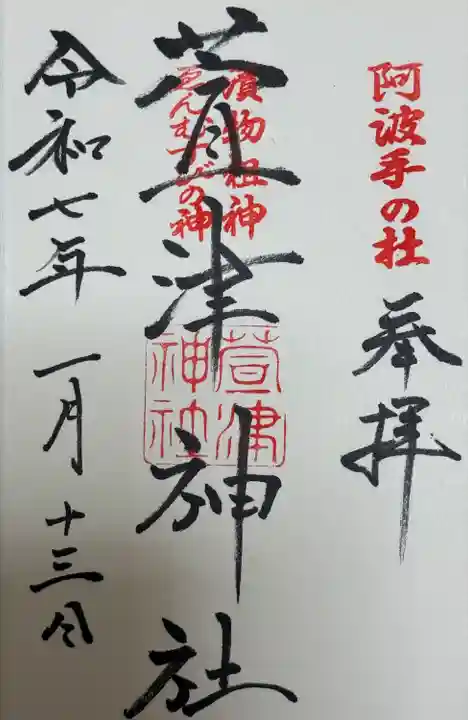 阿波手の杜
奉拝
漬物祖神
ゑんむすびの神
萱津神社
萱津神社
令和七年一月十三日